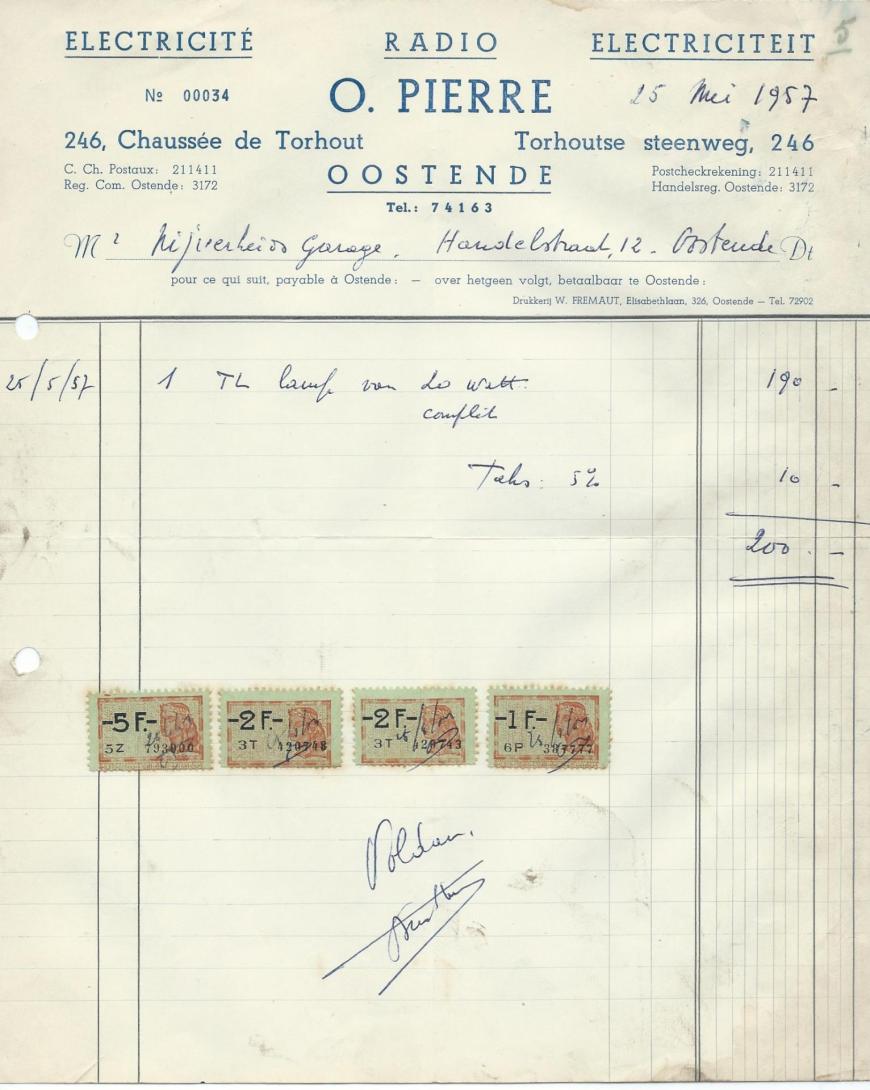 5
ELECTRICITÉ RADIO ELECTRICITEIT
№ 00034 O. PIERRE 25 Mei 1957
246, Chaussée de Torhout Torhoutse steenweg, 246
C. Ch. Postaux: 211411 OOSTENDE Postcheckrekening: 211411
Reg. Com. Ostende: 3172 Handelsreg. Oostende: 3172
Tel.: 74163
Mr Nijverheids Garage. Handelstraat, 12 - Oostende Dt
pour ce qui suit, payable à Ostende: — over hetgeen volgt, betaalbaar te Oostende:
Drukkerij W. FREMAUT, Elisabethlaan, 326, Oostende — Tel. 72902
25/5/57 1 TL lamp van 20 watt. 190 -
complit
Taks: 5% 10 -
200. -
-5 F.- -2 F.- -2 F.- -1 F.-
5Z 3T 3T 6P
Voldaan.